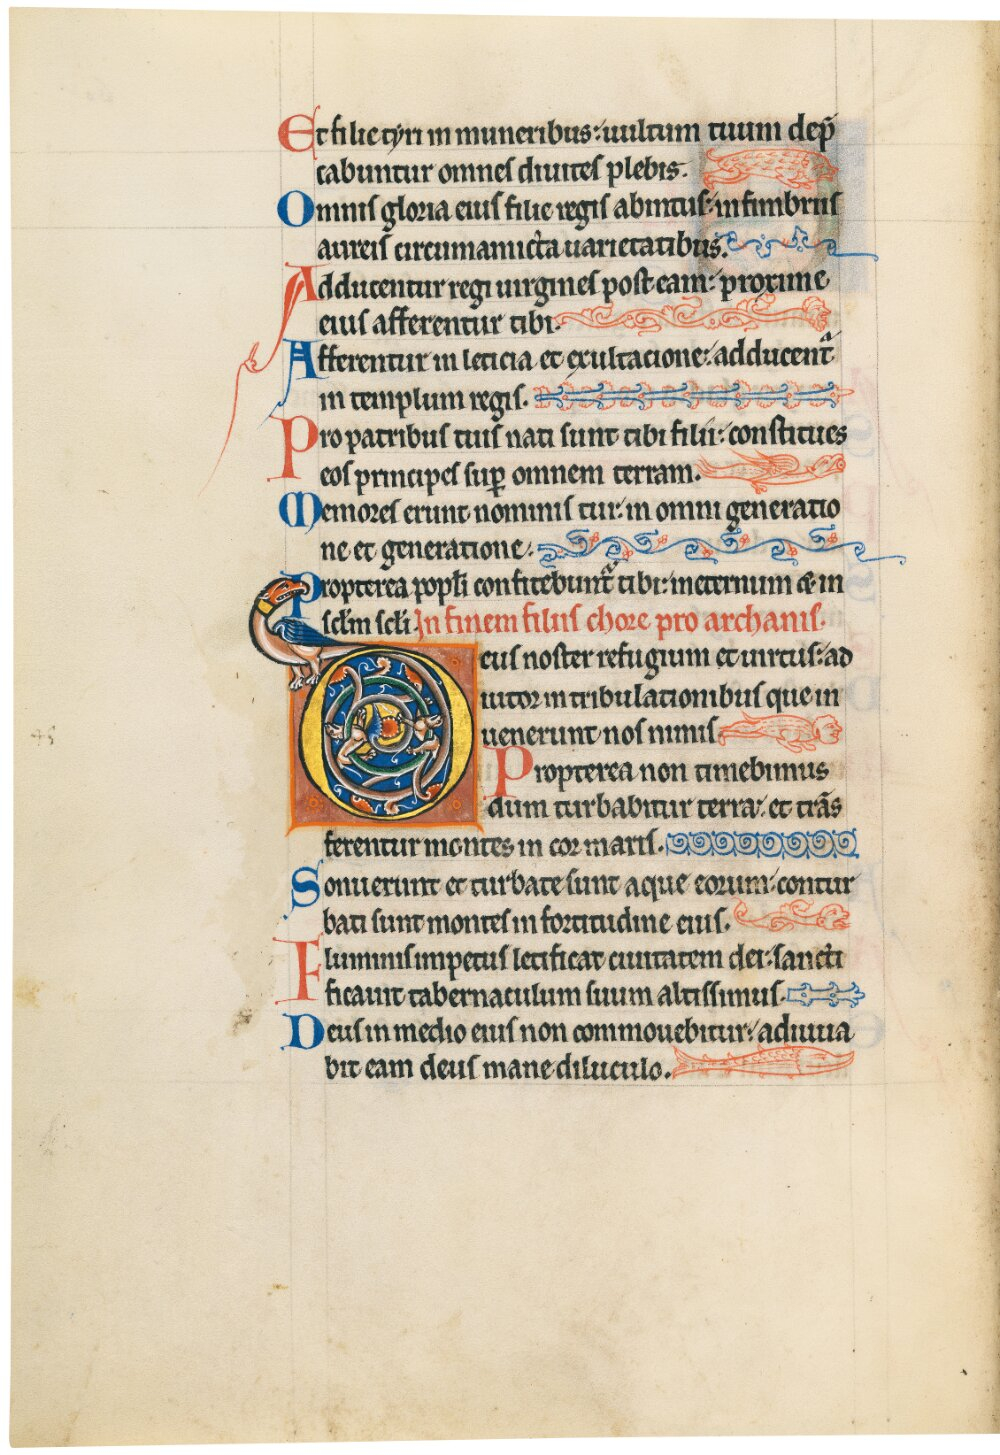 Et filie tyri in muneribus: uultum tuum dep̄
cabuntur omnes diuites plebis.
Omnis gloria eius filie regis abintus: in fimbriis
aureis circumamicta uarietatibus.
Adducentur regi uirgines post eam: proxime
eius afferentur tibi.
Afferentur in leticia et exultacione: adducent᷑
in templum regis.
Pro patribus tuis nati sunt tibi filii: constitues
eos principes sup̱ omnem terram.
Memores erunt nominis tui: in omni generatio
ne et generatione.
Propterea popl̄i confitebunt᷑ tibi: ineternum & in
sclm̄ scl̄i In finem filiis chore pro archanis.
Deus noster refugium et uirtus: ad
iutor in tribulationibus que in
uenerunt nos nimis.
Propterea non timebimus
dum turbabitur terra: et trās
ferentur montes in cor maris.
Sonuerunt et turbate sunt aque eorum: contur
bati sunt montes in fortitudine eius.
Fluminis impetus letificat ciuitatem dei: sancti
ficauit tabernaculum suum altissimus.
Deus in medio eius non commouebitur: adiuua
bit eam deus mane diluculo.